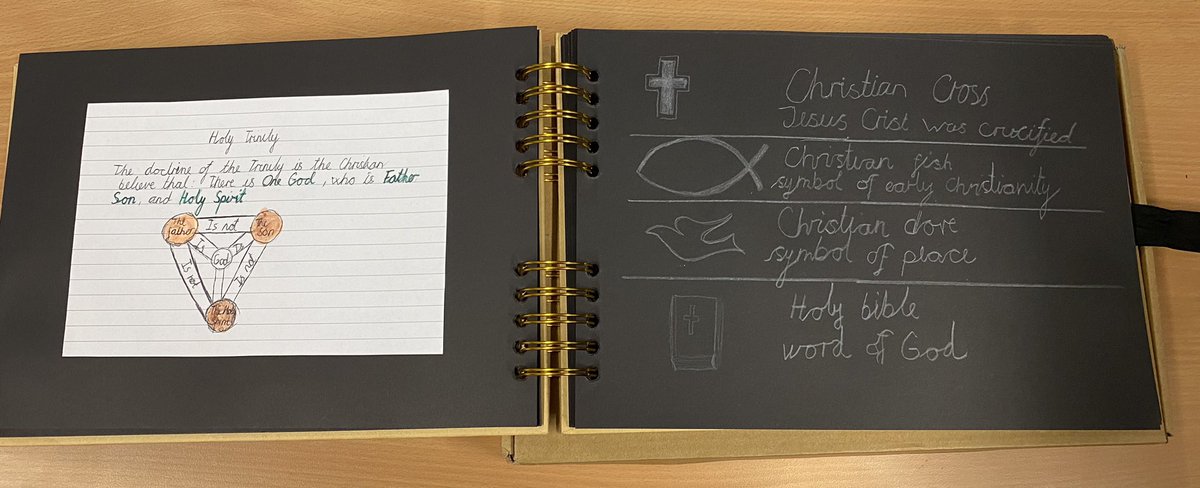 Holy Trinity
The doctrine of the Trinity is the Christian
believe that: There is One God, who is Father
Son, and Holy Spirit
The father
Is not
The Son
Is
Is
God
Is not
Is not
The Holy Spirit
Christian Cross
Jesus Crist was crucified
Christian fish
symbol of early Christianity
Christian dove
symbol of peace
Holy bible
word of God